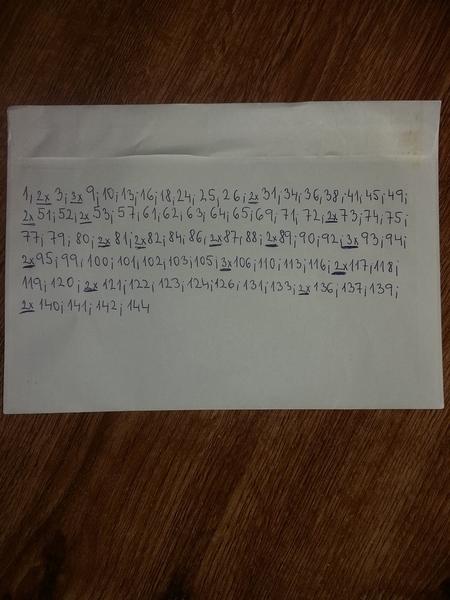 1, 2x 3; 3x 9; 10; 13; 16; 18, 24; 25, 26; 2x 31, 34; 36, 38; 41; 45; 49;
2x 51; 52; 2x 53; 57; 61; 62; 63; 64; 65; 69; 71; 72; 2x 73; 74; 75;
77; 79; 80; 2x 81; 2x 82; 84; 86; 2x 87; 88; 2x 89; 90; 92; 3x 93; 94;
2x 95; 99; 100; 101; 102; 103; 105; 3x 106; 110; 113; 116; 2x 117; 118;
119; 120; 2x 121; 122; 123; 124; 126; 131; 133; 2x 136; 137; 139;
2x 140; 141; 142; 144